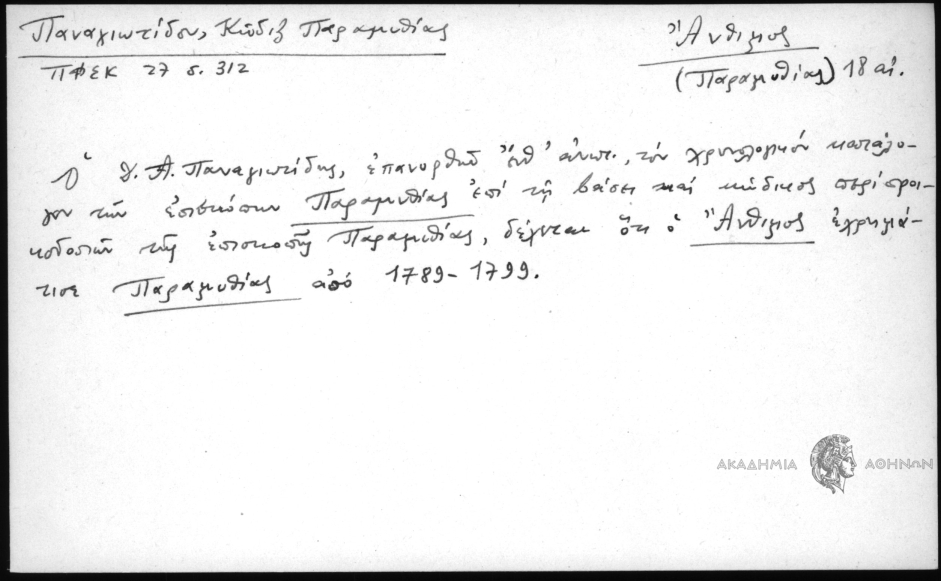 Παναγιωτίδου, Κῶδιξ Παραμυθίας
ΠΦΣΚ 27 σ. 312
Ἄνθιμος
(Παραμυθίας) 18 αἰ.
Ὁ Δ. Α. Παναγιωτίδης, ἐπανορθῶν ἔνθ' ἀνωτ., τὸν χρονολογικὸν κατάλο-
γον τῶν ἐπισκόπων Παραμυθίας ἐπὶ τῇ βάσει καὶ κώδικος περὶ προι-
κοδοτῶν τῆς ἐπισκοπῆς Παραμυθίας, δέχεται ὅτι ὁ Ἄνθιμος ἐχρημά-
τισε Παραμυθίας ἀπό 1789-1799.
ΑΚΑΔΗΜΙΑ ΑΘΗΝΩΝ